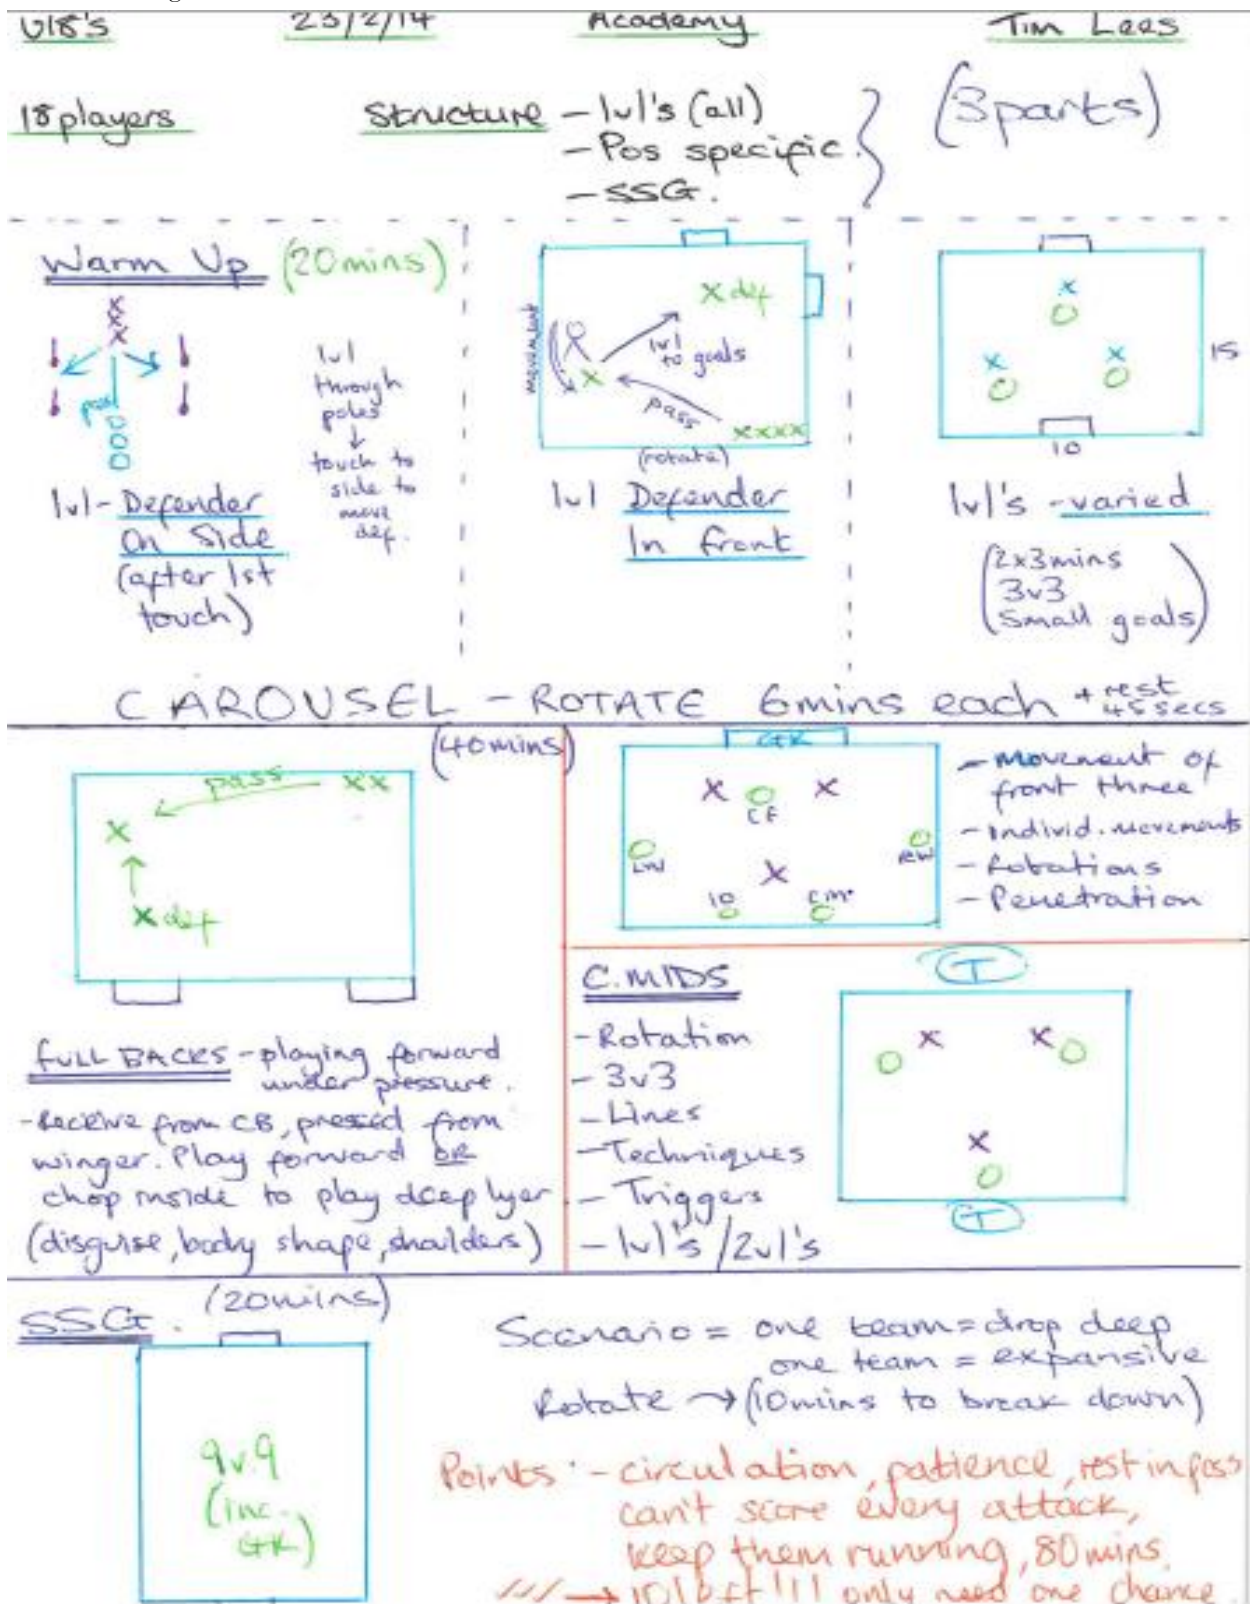 U18's 23/2/14 Academy Tim Lees
18 players Structure - 1v1's (all) (3 parts)
- Pos specific.
- SSG.
Warm Up (20 mins)
x
x
x
pass
O
O
O
1v1
through
poles
↓
touch to
side to
move
def.
1v1 - Defender
On Side
(after 1st
touch)
movement
X def
1v1
to goals
X
pass
xxxx
(rotate)
1v1 Defender
In front
x
O
x x
O O
15
10
1v1's - varied
(2x3mins
3v3
Small goals)
CAROUSEL - ROTATE 6mins each + rest
45 secs
(40 mins)
pass xx
X
X def
FULL BACKS - playing forward
under pressure.
- Receive from CB, pressed from
winger. Play forward OR
chop inside to play deep lyer
(disguise, body shape, shoulders)
GK
X O X
CF
O O
LW RW
X
10 CM
O O
- Movement of
front three
- Individ. movements
- Rotations
- Penetration
C.MIDS
- Rotation
- 3v3
- Lines
- Techniques
- Triggers
- 1v1's / 2v1's
T
X X
O O
X
O
T
SSG. (20 mins)
9v9
(inc.
GK)
Scenario = one team = drop deep
one team = expansive
Rotate → (10 mins to break down)
Points - circulation, patience, rest in poss
can't score every attack,
keep them running, 80 mins.
/// → !!! only need one chance.